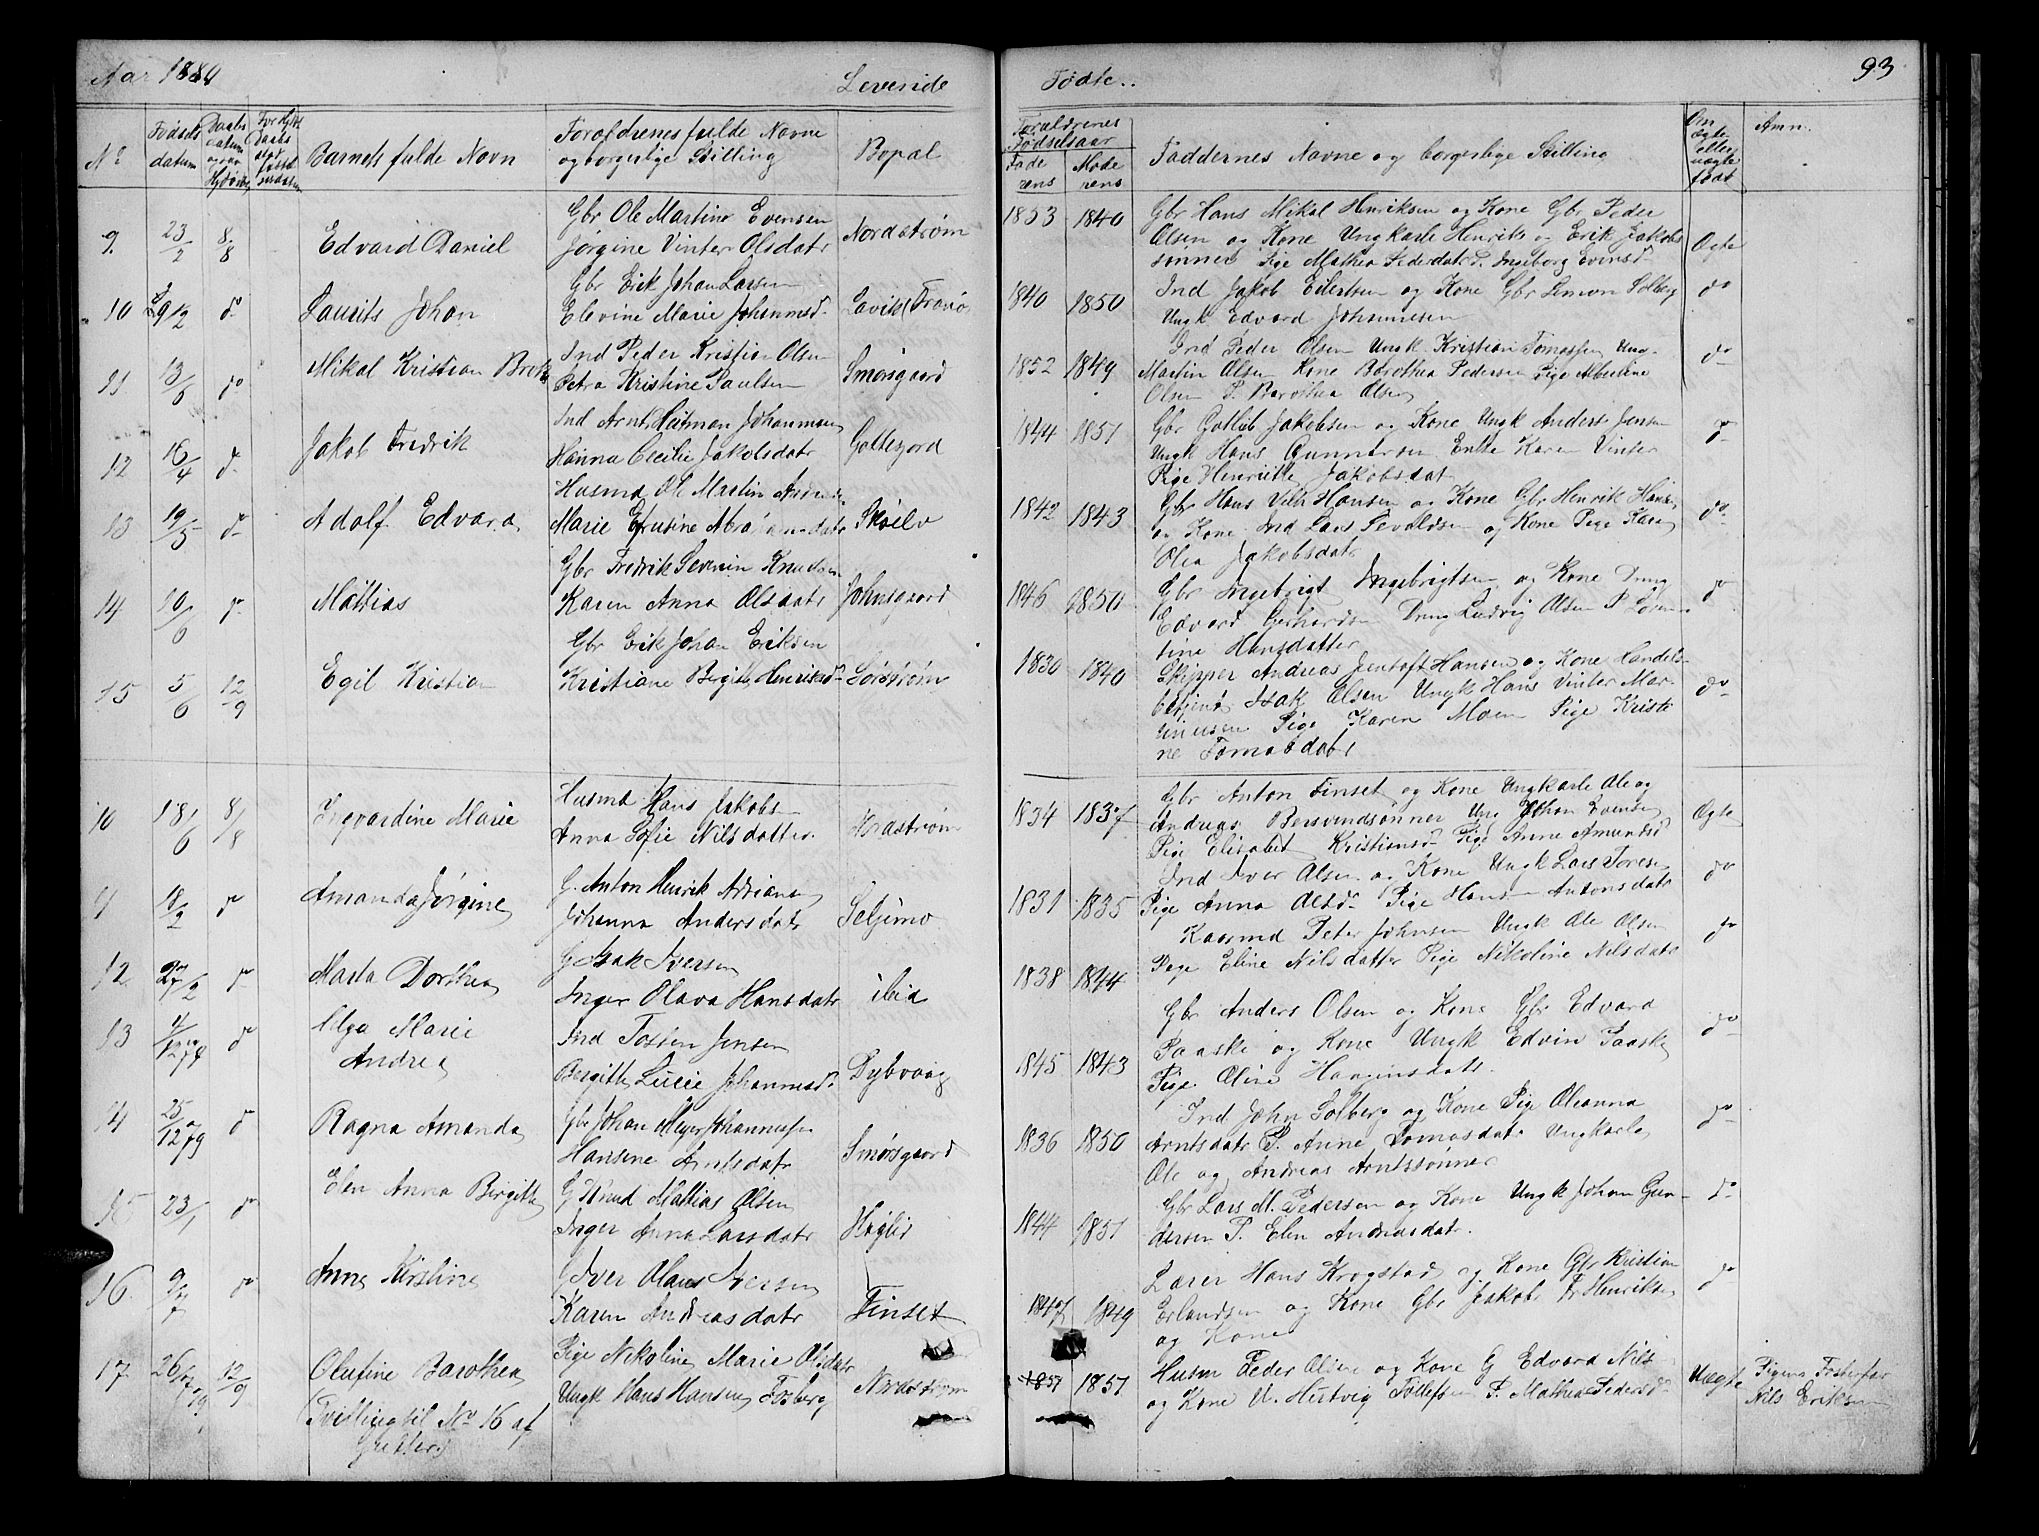 Aar 1880
Levende
Fødte..
93
No
Fødsels datum
Daabs datum
Barnets fulde Navn
Forældrenes fulde Navne og borgerlige Stilling
Bopæl
Forældrenes Fødselsaar
Faderens
Moderens
Faddernes Navne og borgerlige Stilling
Om ægte eller uægte født
Anm.
9. 23/2 8/8 Edvard Daniel
Gbr Ole Martin Evensen
Jørgine Vinter Olsdatr
Nordstrøm
1853 1840
Gbr Hans Mikal Henriksen og Kone Gbr Peder
Olsen og Kone Ungkarle Henrik og Erik Jakobs
sønner Pige Mathea Pedersdatr P. Ingeborg Evensd
Ægte
10 do Laurits Johan
Gbr Erik Johan Larsen
Elevine Marie Johannesd.
Lavik
1840 1850
Ind Jakob Eilertsen og Kone Gbr Simon Solberg
Ungk Edvard Johannesen
do
11 13/6 do Mikal Kristian
Ind Peder Kristian Olsen
Petra Kristine Paulsen
Smørsgaard
1852 1849
Ind Peder Olsen Ungk. Kristian Tomassen Ung-
Martin Olsen Kone Barothea Pedersen Pige Albertine
Olsen P. Barothea Olsen
do
12 16/4 do Jakob Fredrik
Ind Arnt Heitman Johannesen
Hanna Cecilie Jakobsdatr
Gottesjord
1844 1851
Gbr Gotlib Jakobsen og Kone Ungk Anders Jensen
Ungk Hans Gunnarsen Enke Karen Vinter
Pige Henriette Jakobsdat
do
13 19/5 do Adolf Edvard
Husmd Ole Martin
Marie Efrusine
Skoelv
1842 1843
Gbr Hans Vilh Hansen og Kone Gbr Henrik Hans
og Kone Ind Lars Sevaldsen og Kone Pige Karen
Olea Jakobsdatr
do
14 10/6 do Mattias
Gbr Fredrik Severin Knudsen
Karen Anna Olsdatr
Johnsgaard
1846 1850
Gbr Ingebrigt Ingebrigtsen og Kone Dreng
Edvard Gerhardsen Dreng Ludvig Olsen P. Soren-
tine Hansdatter
do
15 5/6 12/9 Egil Kristian
Gbr Erik Johan Eriksen
Kristiane Bergitte Henriksd
Sørstrøm
1830 1840
Skipper Andreas Jentoft Hansen og Kone Handels-
betjent Isak Olsen Ungk Hans Vinter Mar-
tinusen Pige Karen Moen Pige Kristi-
ne Tomasdatr
do
10 18/6 8/8 Ingvardine Marie
Husmd Hans Jakobs
Anna Sofie Nilsdatter.
Nordstrøm
1834 1837
Gbr Anton Finset og Kone Ungkarle Ole og
Andreas Bersvendsønner Ung Johan Evensen
Pige Elisabet Kristiansd Pige Anne Amundsd
Ægte
11 18/2 do Amanda Jørgine
G. Anton Henrik Adriansen
Johanna Andersdatr
Seljemo
1831 1835
Ind Iver Olsen og Kone Ungk Lars Toresen
Pige Anna Olsd Pige Hanna Antonsdatr
do
12. 27/2 do Marta Dorthea
G Isak Iversen
Inger Olava Hansdatr
ibid
1838 1844
Kaarmd Peter Johnsen Ungk Ole Olsen
Pige Eline Nilsdatter Pige Nikoline Nilsdatr
do
13 do Helga Marie
Andrea
Ind Tosten Jensen
Bergitte Lucie Johannesd
Dybvaag
1845 1843
Gbr Anders Olsen og Kone Gbr Edvard
Paaske og Kone Ungk Edvin Paaske
Pige Oline Hansinsdatr.
do
14 25/12 79 do Ragna Amanda
Gbr Johan Meyer Johannesen
Hansine Arntsdatr
Smørsgaard
1836 1850
Ind John Solberg og Kone Pige Oleanna
Arntsdatr P. Anne Tomasdatr Ungkarle
Ole og Andreas Arntssønner
do
15 23/1 do Elen Anna Birgitte
G Knud Mattias Olsen
Inger Anna Larsdatr
Høglid
1844 1851
Gbr Lars M. Pedersen og Kone Ungk Johan Gun-
dersen P. Elen Andreasdatr.
do
16. 9/7 do Anne Kirstine
G Iver Olaus Iversen
Karen Andreasdatr
Finset
1847 1849
Lærer Hans Krogstad og Kone Gbr Kristian
Erlandsen og Kone Gbr Jakob Fr Henriksen
og Kone
do
17 26/7 79 12/9 Olufine Barothea
(Tvilling til No 16 af
Gutter)
Pige Nikoline Marie Olsdatr
Ungk Hans Hansen Fosberg
Nordstrøm
1857 1851
Husm Peder Olsen og Kone G Edvard Nils
og Kone U. Hertvig Tollefsen P. Mathea Pedersd
Uægte
Pigens Fosterfar
Nils Eriksen